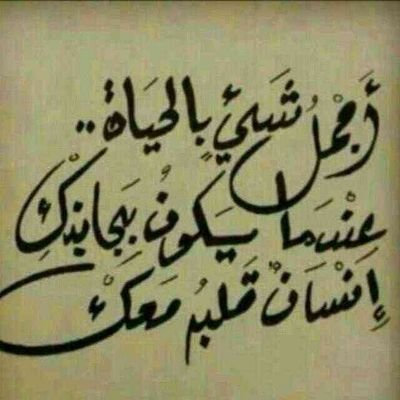 أَجْمَلُ شَيْءٍ بِالحَيَاة..
عِنْدَمَا يَكُونُ بِجَانِبِكِ
إِنْسَانٌ قَلبُهُ مَعَكْ